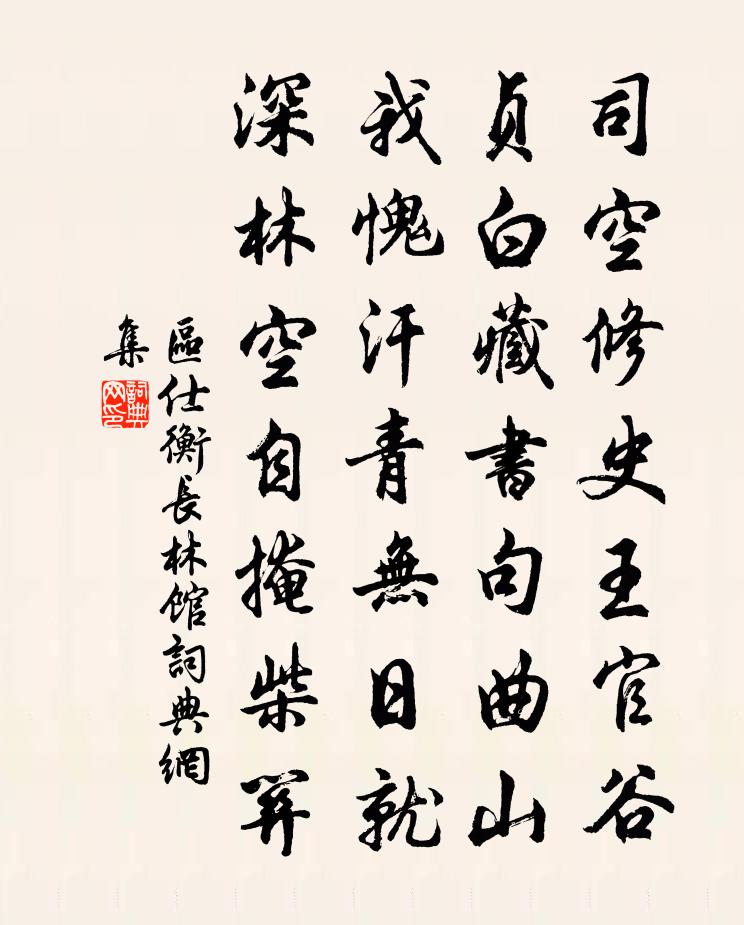 司空修史王官谷
貞白藏書句曲山
我愧汗青無日就
深林空自掩柴關
區仕衡長林館詞典網
集
詞典网印